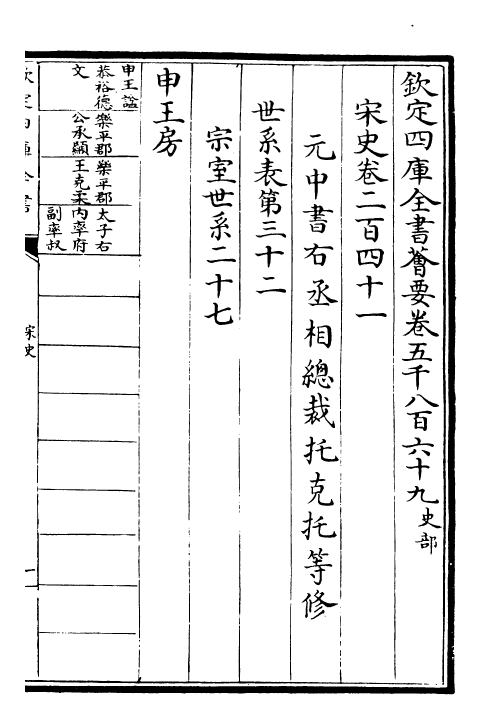 欽定四庫全書薈要卷五千八百六十九史部
宋史卷二百四十一
元中書右丞相總裁托克托等修
世系表第三十二
宗室世系二十七
申王房
申王諡
恭裕德
文
樂平郡
公承顯
樂平郡
王克柔
太子右
內率府
副率叔
宋史
一